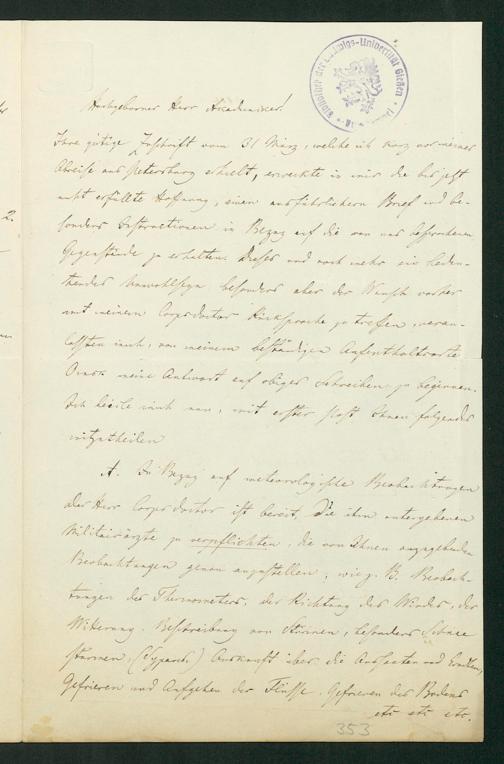 Bibliothek der Ludwigs-Universität Gießen
Hochgeborner Herr Academiker!
Ihre gütige Zuschrift vom 31 März, welche ich kurz vor meiner
Abreise aus Petersburg erhielt, erweckte in mir die bis jetzt
nicht erfüllte Hoffnung, einen ausführlichern Brief und be-
sonders Instructionen in Bezug auf die von uns besprochenen
Gegenstände zu erhalten. Dieses und noch mehr ein bedeu-
tendes Unwohlseyn besonders aber der Wunsch vorher
mit meinem Corpsdoctor Rücksprache zu treffen, veran-
lassten mich, von meinem beständigen Aufenthaltsorte
Omsk meine Antwort auf obiges Schreiben zu beginnen.
Ich beeile mich nun, mit erster Post Ihnen folgendes
mitzutheilen
A. In Bezug auf meteorologische Beobachtungen
Der Herr Corpsdoctor ist bereit, die ihm untergebenen
Militairärzte zu verpflichten, die von Ihnen angegebenen
Beobachtungen genau anzustellen, wie z. B. Beobach-
tungen des Thermometers, der Richtung des Windes, der
Witterung. Beschreibung von Stürmen, besonders Schnee
stürmen, Auskunft über die Aussaaten und Erndten,
Gefrieren und Aufgehen der Flüsse. Gefrieren des Bodens
etc etc etc.
353
2.